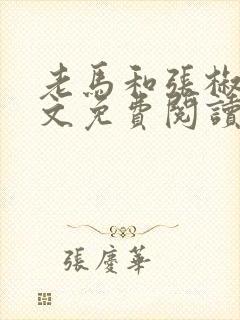 老馬和張椒
文免費閱讀
張慶華